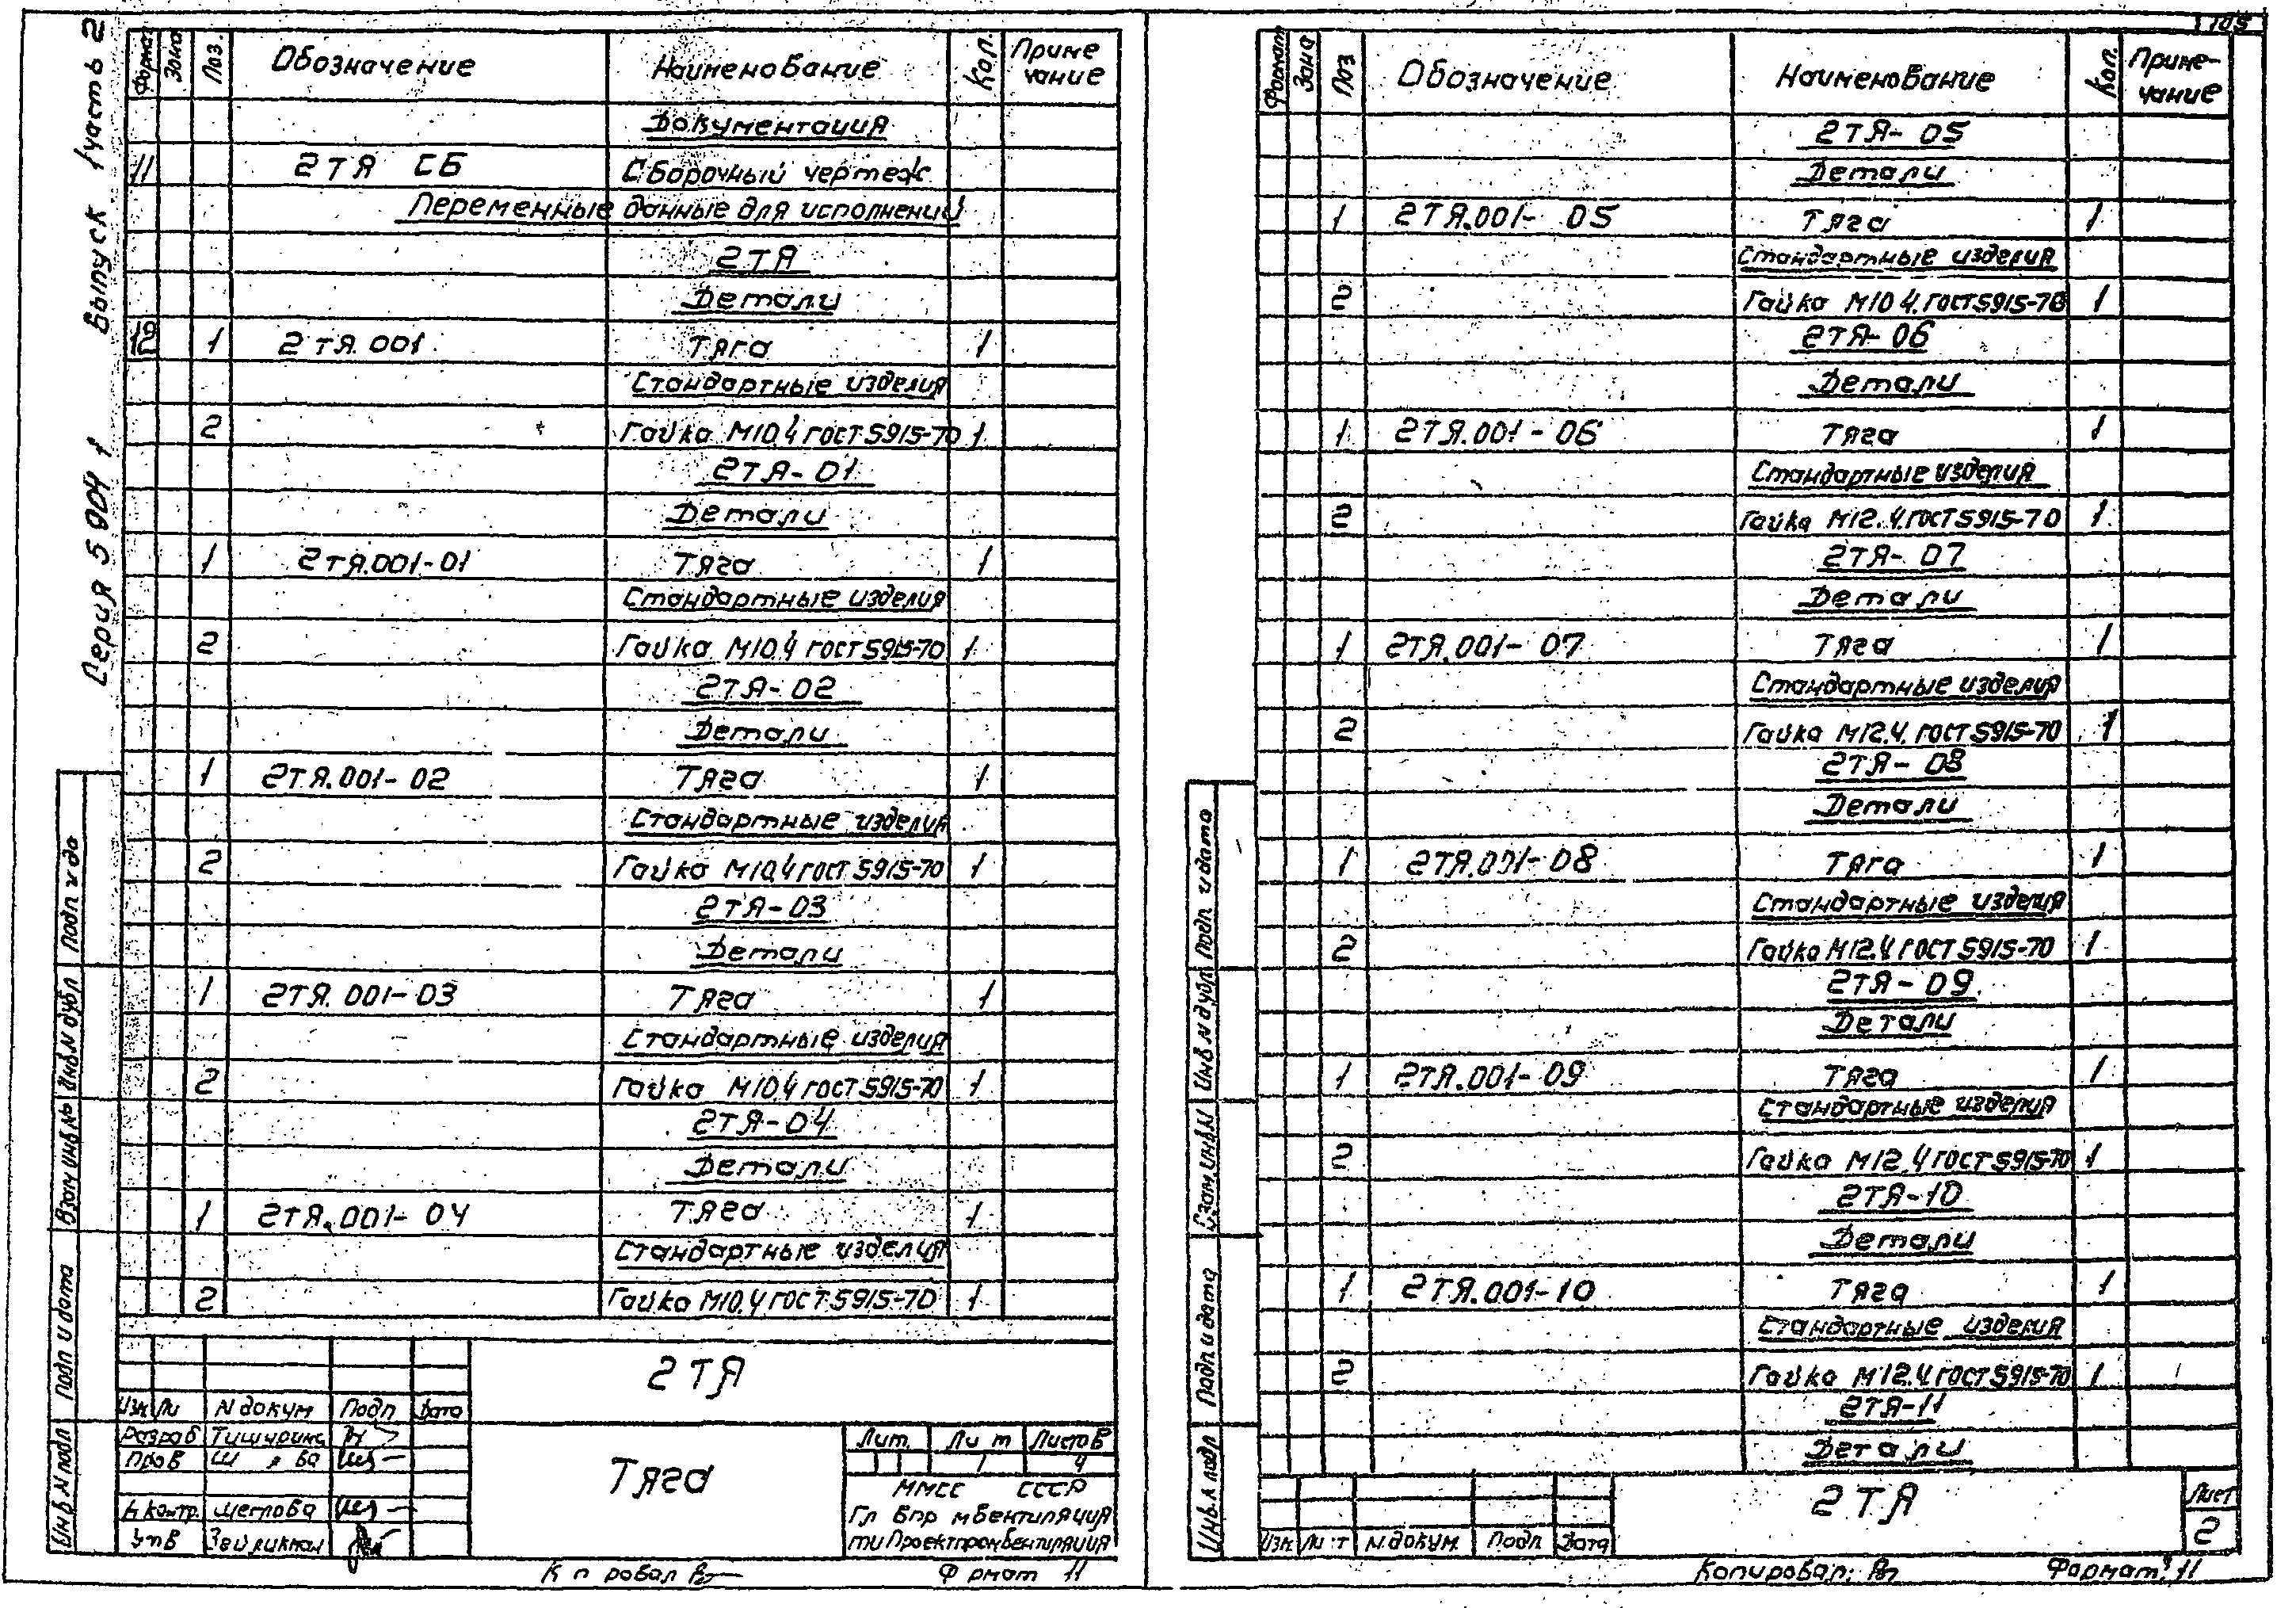 Серия 5 904 1 Выпуск 1 часть 2
Формат Зона Поз. Обозначение Наименование Кол. Приме чание
Документация
11 2ТЯ СБ Сборочный чертеж
Переменные данные для исполнений
2ТЯ
Детали
12 1 2ТЯ.001 Тяга 1
Стандартные изделия
2 Гайка М10.4 ГОСТ 5915-70 1
2ТЯ-01
Детали
1 2ТЯ.001-01 Тяга 1
Стандартные изделия
2 Гайка М10.4 ГОСТ 5915-70 1
2ТЯ-02
Детали
1 2ТЯ.001-02 Тяга 1
Стандартные изделия
2 Гайка М10.4 ГОСТ 5915-70 1
2ТЯ-03
Детали
1 2ТЯ.001-03 Тяга 1
Стандартные изделия
2 Гайка М10.4 ГОСТ 5915-70 1
2ТЯ-04
Детали
1 2ТЯ.001-04 Тяга 1
Стандартные изделия
2 Гайка М10.4 ГОСТ 5915-70 1
Подп и да
Инв.N дубл
Взам инв №
Подп и дата
Инв N подл
2ТЯ
Изм Ли N докум Подп Дата
Разраб
Пров
Н контр. Щеглова
Утв
Тяга
Лит. Ли т Листов
1 4
ММСС СССР
Гл впр мвентиляция
ти Проектпромвентиляция
К п ровал
Ф рмат 11
Формат Зона Поз Обозначение Наименование Кол. Приме- чание
2ТЯ-05
Детали
1 2ТЯ.001-05 Тяга 1
Стандартные изделия
2 Гайка М10.4. ГОСТ 5915-70 1
2ТЯ-06
Детали
1 2ТЯ.001-06 Тяга 1
Стандартные изделия
2 Гайка М12.4. ГОСТ 5915-70 1
2ТЯ-07
Детали
1 2ТЯ.001-07 Тяга 1
Стандартные изделия
2 Гайка М12.4. ГОСТ 5915-70 1
2ТЯ-08
Детали
1 2ТЯ.001-08 Тяга 1
Стандартные изделия
2 Гайка М12.4 ГОСТ 5915-70 1
2ТЯ-09
Детали
1 2ТЯ.001-09 Тяга 1
Стандартные изделия
2 Гайка М12.4 ГОСТ 5915-70 1
2ТЯ-10
Детали
1 2ТЯ.001-10 Тяга 1
Стандартные изделия
2 Гайка М12.4. ГОСТ 5915-70 1
2ТЯ-11
Детали
Подп и дата
Инв N дубл
Взам.инв.N
Подп и дата
Инв.N подл
Изм. Ли т N.докум. Подп Дата
2ТЯ
Лист
2
Копировал:
Формат: 11